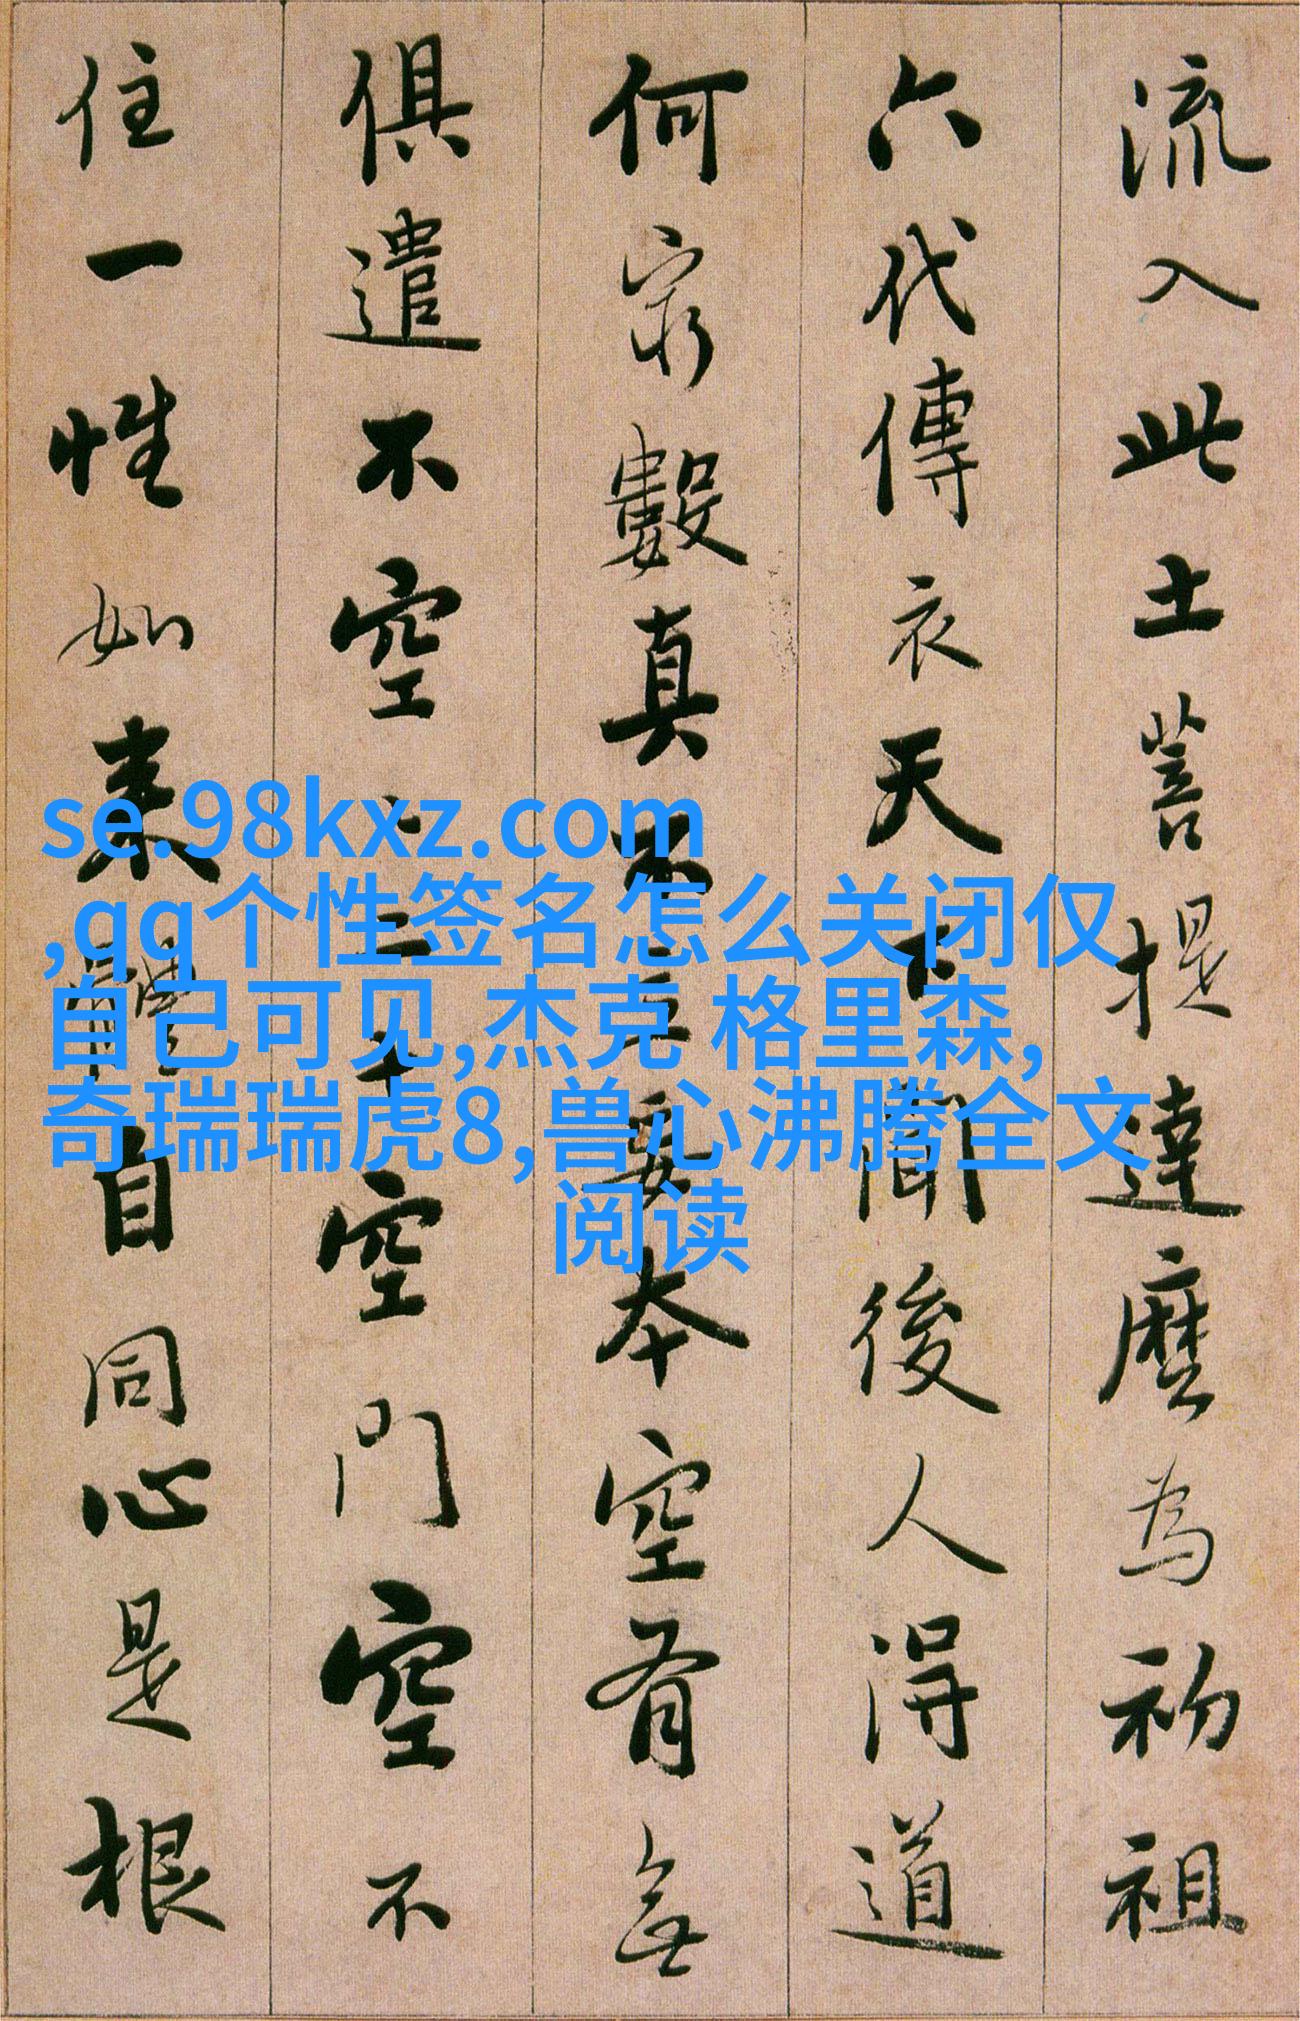 流入此土菩提達磨為初祖
六代傳衣天下聞後人得道
何窮數真不立妄本空有無
俱遣不空空二十空門空不
住一性如來體自同心是根
se.98kxz.com
,qq个性签名怎么关闭仅
自己可见,杰克 格里森,
奇瑞瑞虎8,兽心沸腾全文
阅读